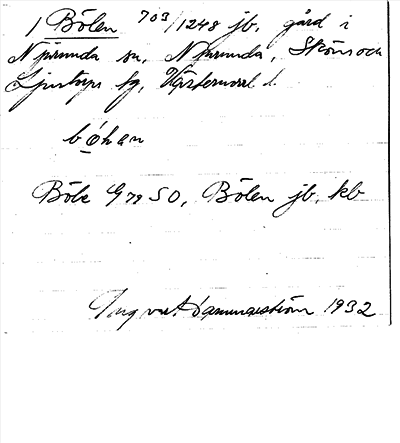 1 Bölen 703/1248 jb, gård i
Njurunda sn, Njurunda, Sköns och
Ljustorps tg, Västernorrl. l.
bóhan
Böle G 79 SO, Bölen jb, kb
Ingvar Hammarström 1932